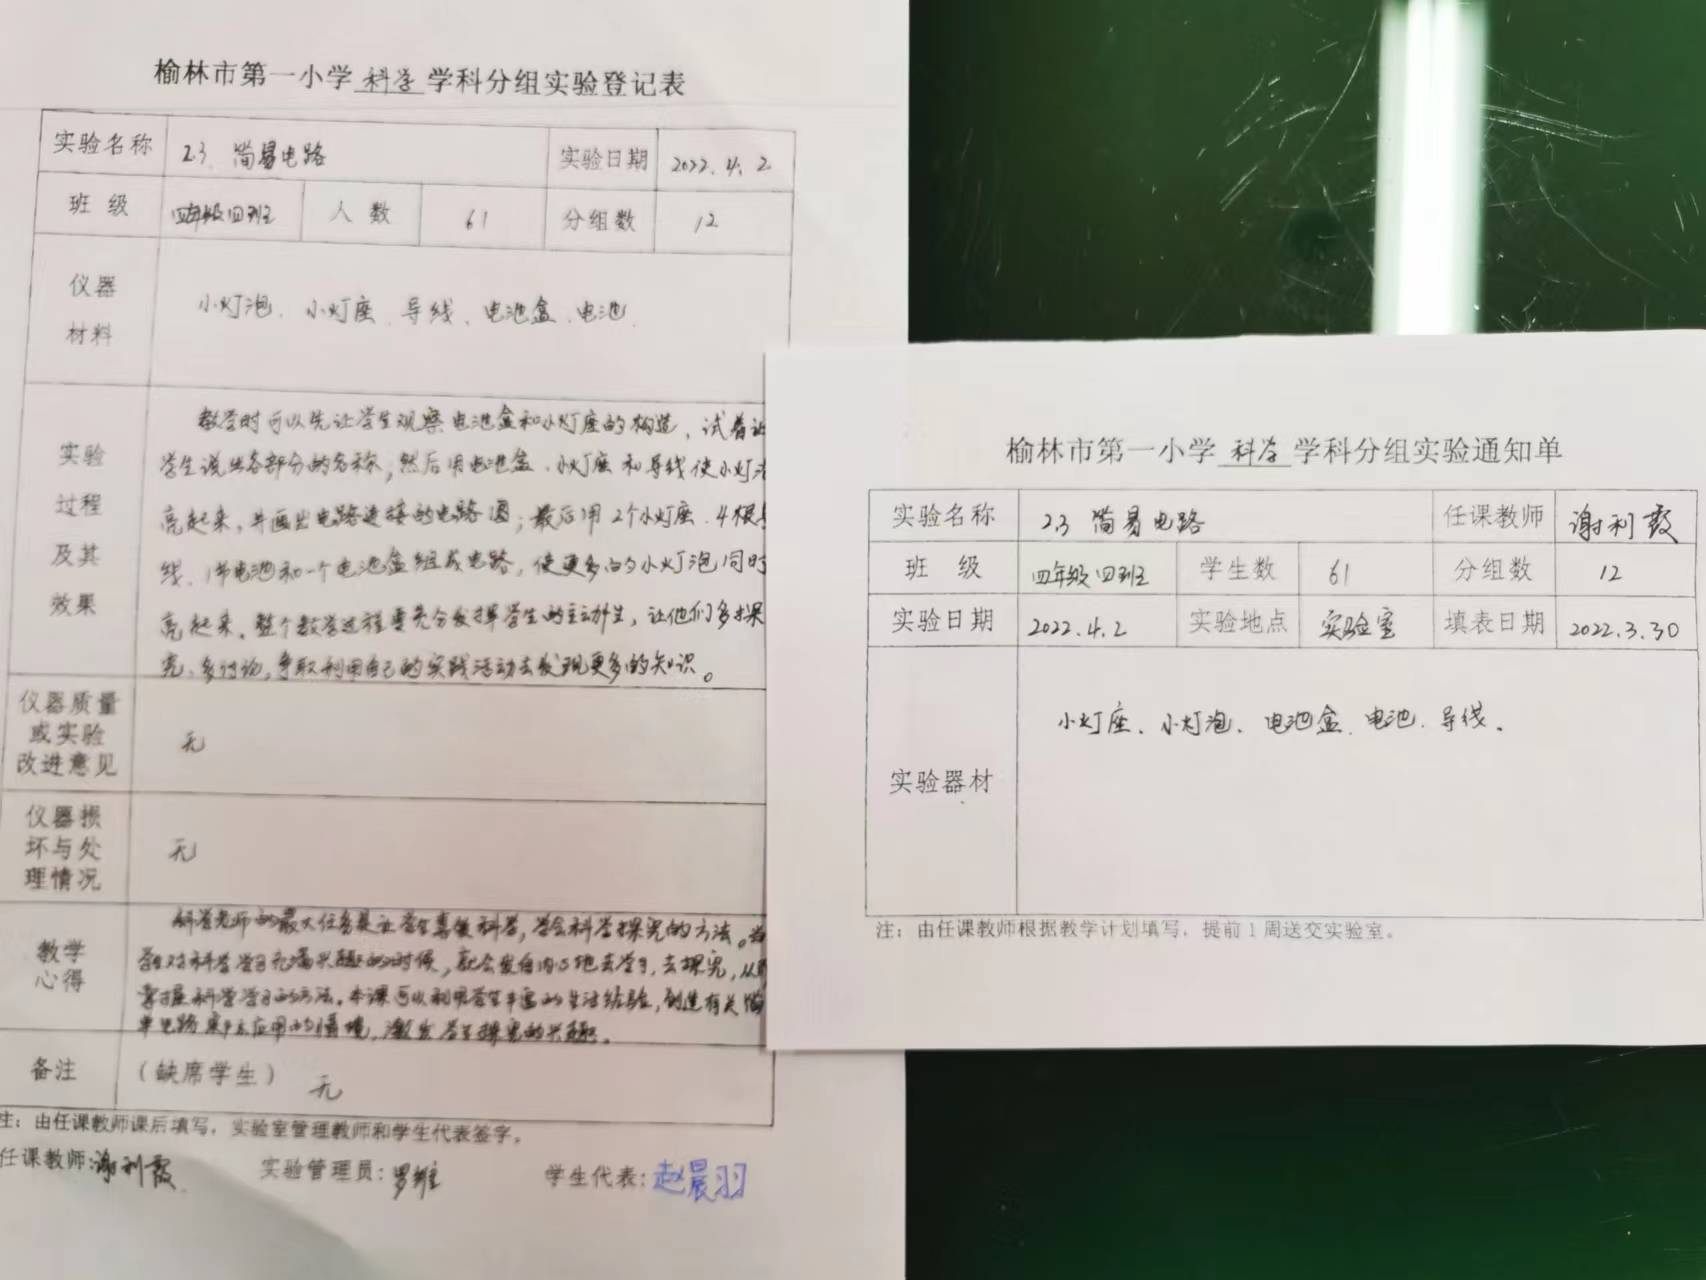 榆林市第一小学 科学 学科分组实验登记表
实验名称 2.3 简易电路 实验日期 2022.4.2
班级 四年级四班 人数 61 分组数 12
仪器
材料
小灯泡、小灯座、导线、电池盒、电池
实验
过程
及其
效果
教学时可以先让学生观察电池盒和小灯座的构造,试着让
学生说出各部分的名称,然后用电池盒、小灯座和导线使小灯泡
亮起来,并画出电路连接的电路图;最后用2个小灯座、4根导
线、1节电池和一个电池盒组成电路,使更多的小灯泡同时
亮起来。整个教学过程要充分发挥学生的主动性,让他们多探
究,多讨论,争取利用自己的实践活动去发现更多的知识。
仪器质量
或实验
改进意见
无
仪器损
坏与处
理情况
无
教学
心得
科学老师的最大任务是让学生喜欢科学,学会科学探究的方法。当
学生对科学学习充满兴趣的时候,就会发自内心地去学习,去探究,从而
掌握科学学习的方法。本课可以利用学生丰富的生活经验,创造有关简
单电路 应用的情境,激发学生探究的兴趣。
备注 (缺席学生) 无
注:由任课教师课后填写,实验室管理教师和学生代表签字。
任课教师:谢利霞 实验管理员:罗维 学生代表:赵晨羽
榆林市第一小学 科学 学科分组实验通知单
实验名称 2.3 简易电路 任课教师 谢利霞
班级 四年级四班 学生数 61 分组数 12
实验日期 2022.4.2 实验地点 实验室 填表日期 2022.3.30
实验器材
小灯座、小灯泡、电池盒、电池、导线。
注:由任课教师根据教学计划填写,提前1周送交实验室。